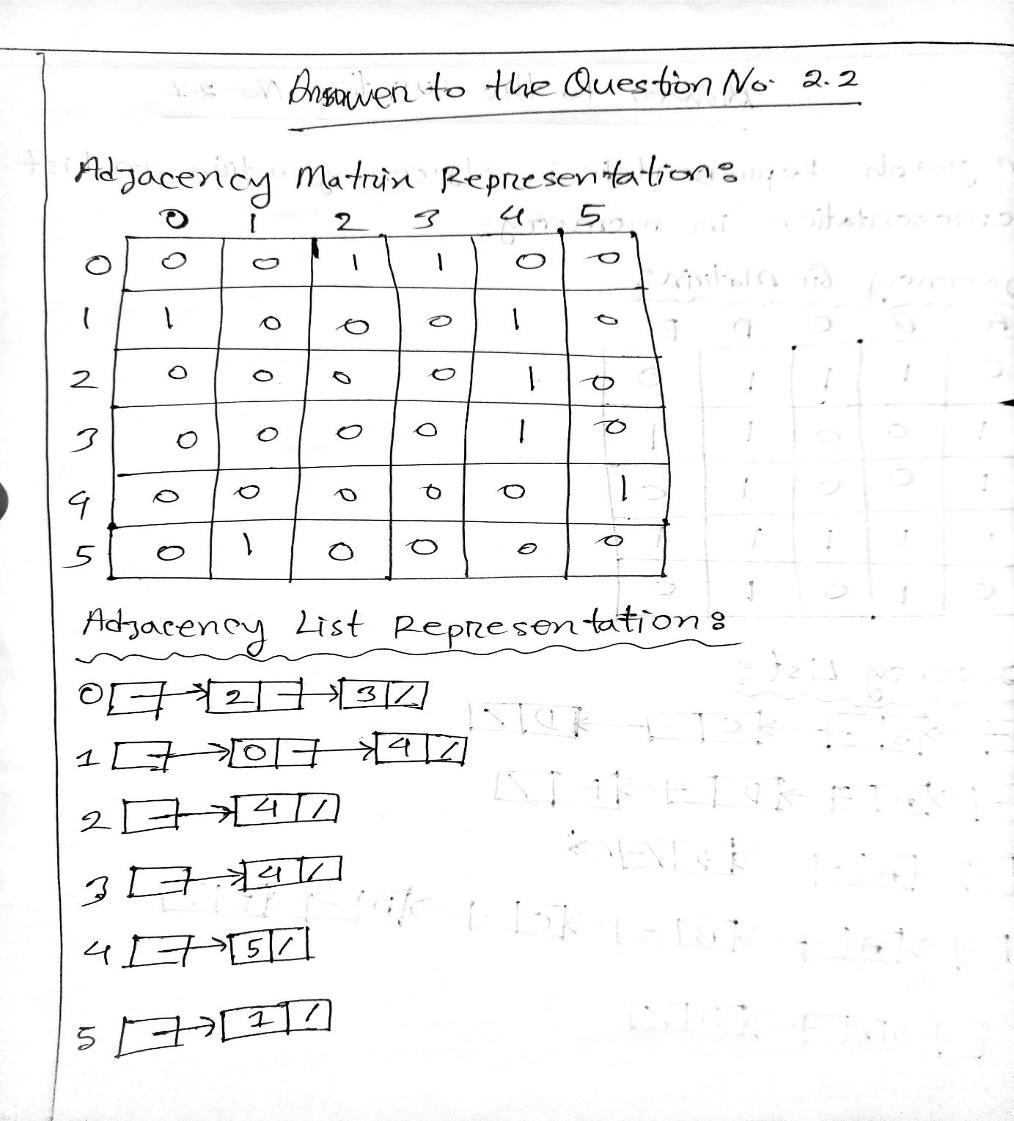 Answer to the Question No. 2.2
Adjacency Matrix Representation:
0 1 2 3 4 5
0 0 0 1 1 0 0
1 1 0 0 0 1 0
2 0 0 0 0 1 0
3 0 0 0 0 1 0
4 0 0 0 0 0 1
5 0 1 0 0 0 0
Adjacency List Representation:
0 → 2 → 3 /
1 → 0 → 4 /
2 → 4 /
3 → 4 /
4 → 5 /
5 → 1 /